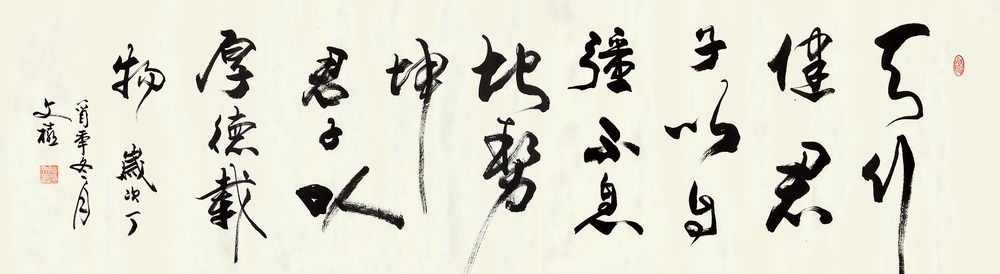 天行
健君
子以自
強不息
地勢
坤
君子以
厚德載
物 歲次丁
酉年冬月
文禧